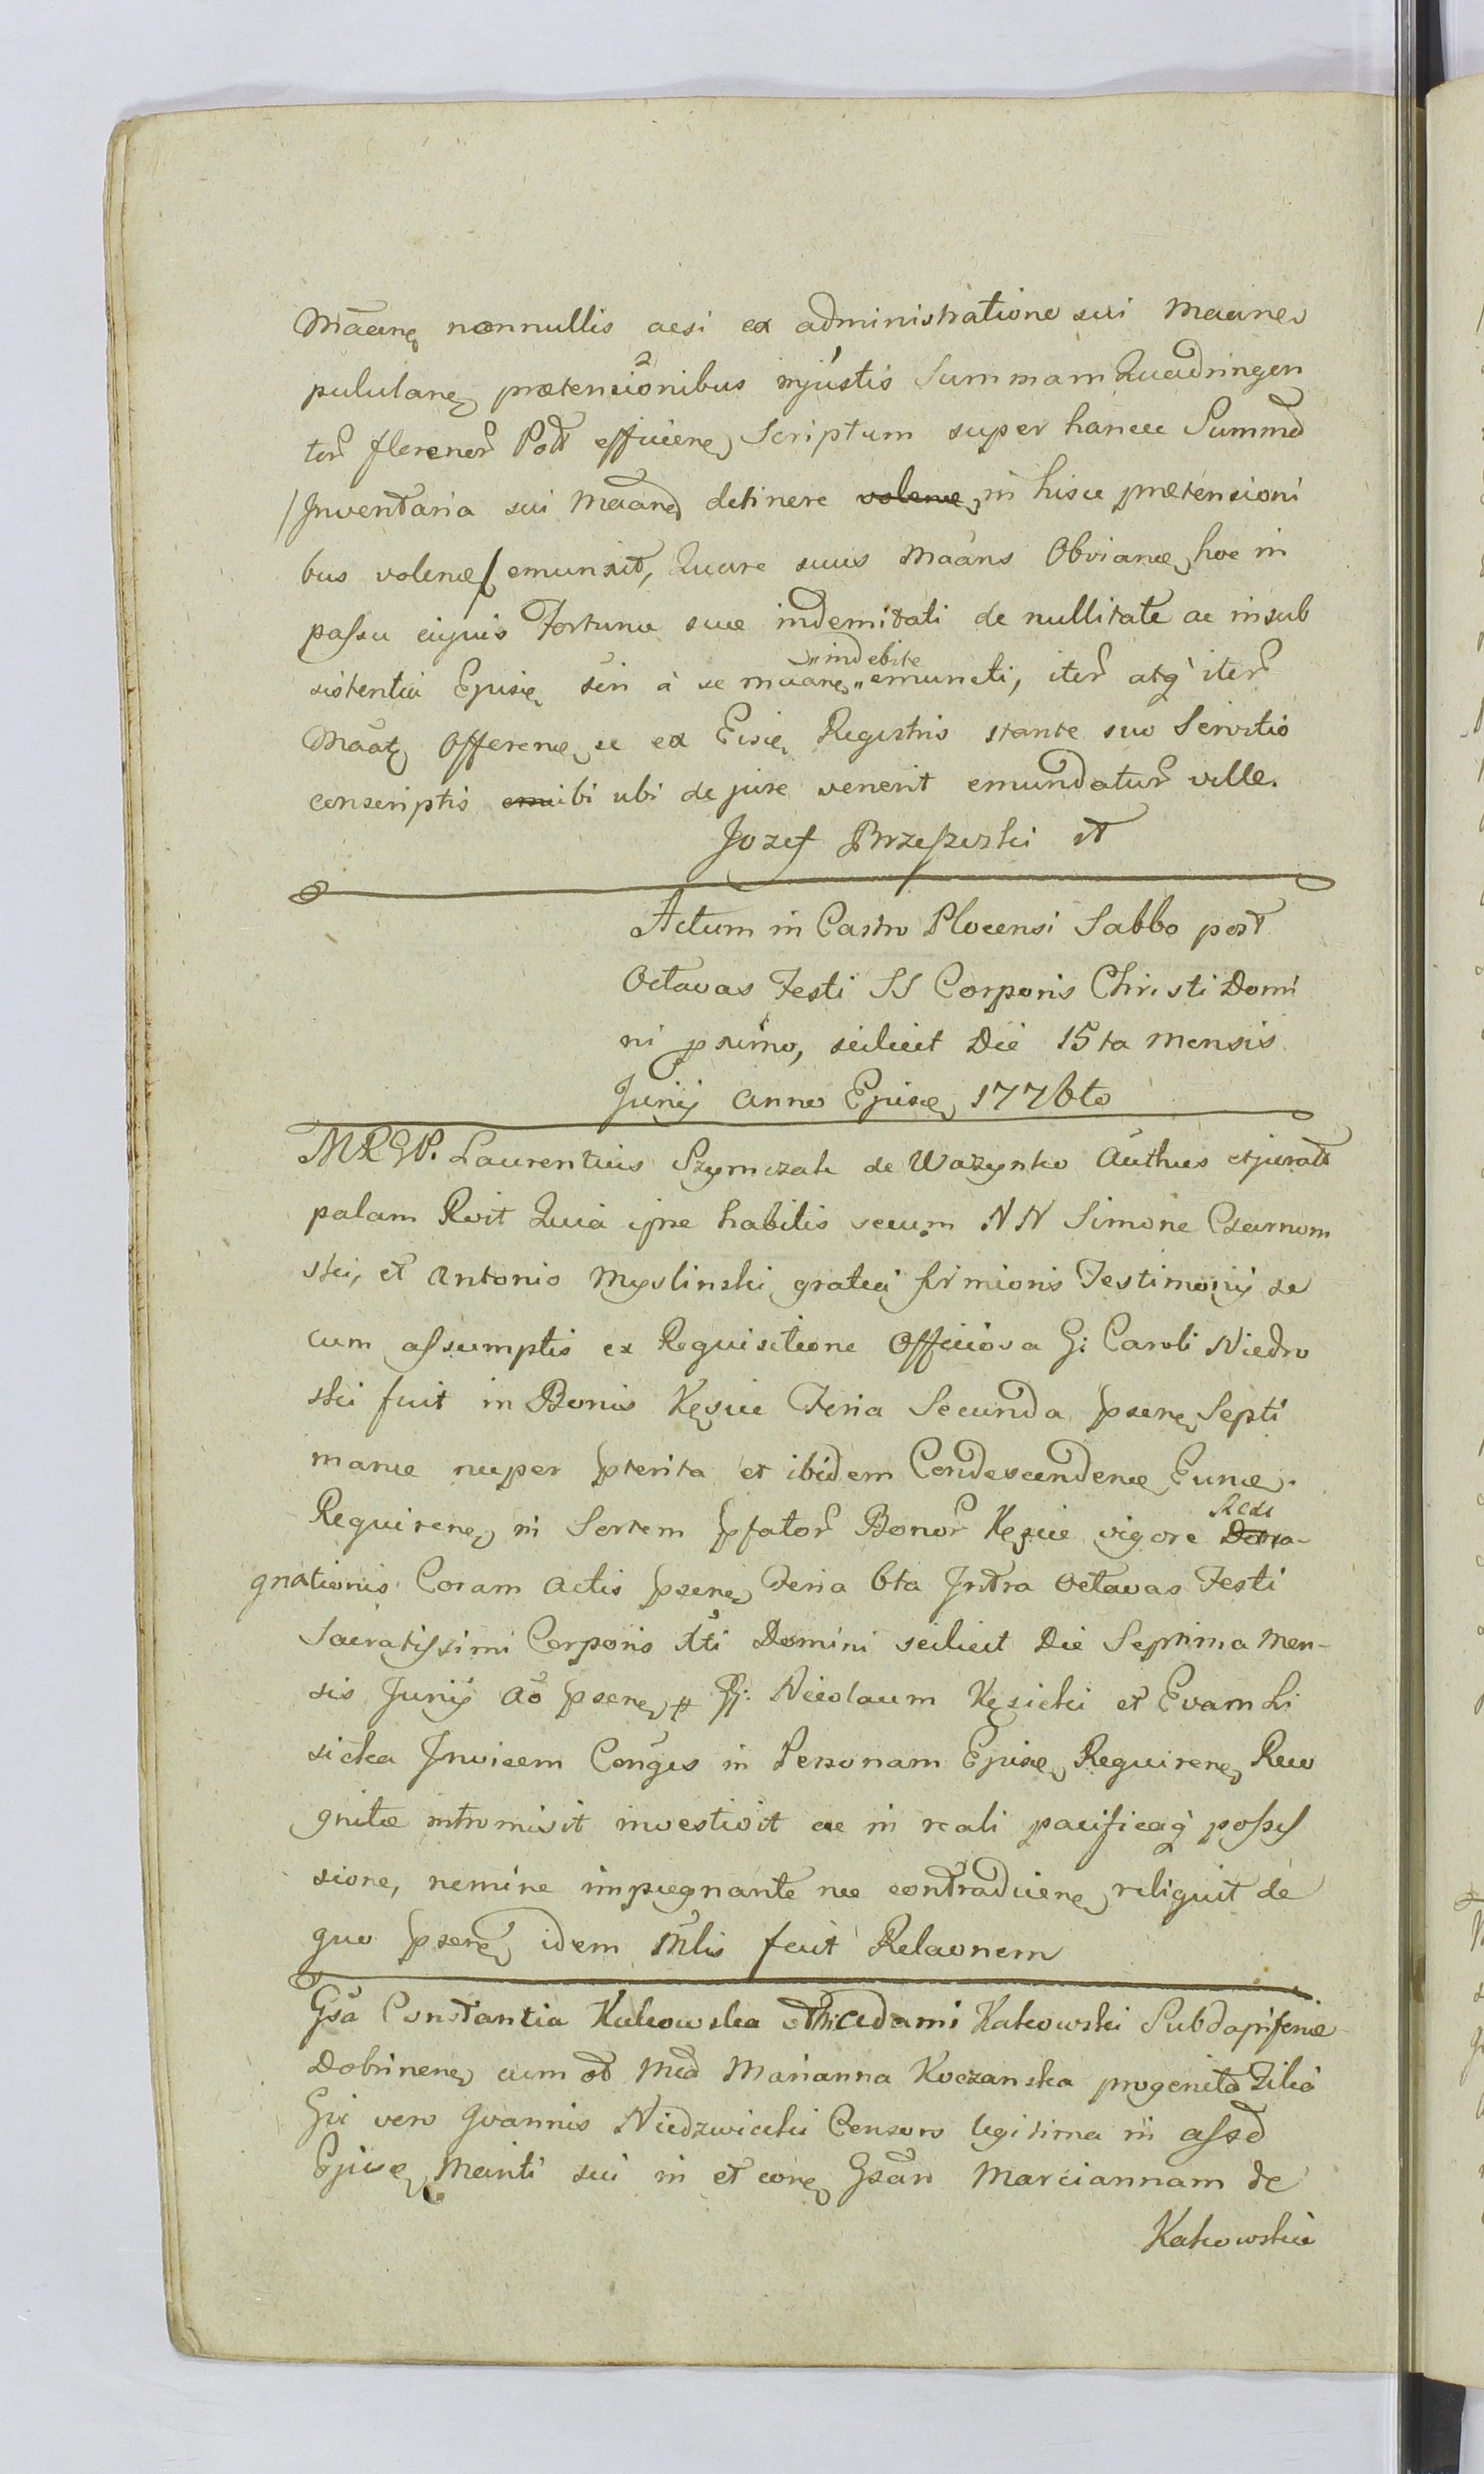 Māane nonnullis acsi ex administratione sui Maane
pululane prætensionibus injustis Summam Quadringen
tor florenor Pol efficiene Scriptum super hance Summa
Inventaria sui Maane detinere volene in hisce prætensioni
bus volene emunxit, Quare suus Maans Obviane hoc in
passu eiquis Fortunæ suæ indemitati de nullitate ac insub
sistentia Ejusde sui à se māane „indebite„ emuncti, iter atq iter
Māat Offerene se ex Eisde Registris stante suo Servitio
conscriptis emu ibi ubi de jure venerit emundatur velle.
Jozef Brzeszewski
Actum in Castro Plocensi Sabbo post
Octavas Festi SS Corporis Christi Domi
ni primo, scilicet Die 15ta Mensis
Junij Anno Ejusde 1776to
MRGP. Laurentius Szymczak de Wazynko Authus et jurat
palam Rvit Quia ipse habitis secum NN Simone Czarnom
ski, et Antonio Myslinski gratia firmioris Testimonij se
cum assumptis ex Requisitione Officiosa G: Caroli Niedro
ski fuit in Bonis Kęsice Feria Secunda psene Septi
manæ nuper pterita et ibidem Condescendene Eunde
Requirene in Sortem pfator Bonor Kęsice vigore Resi
gnationis Coram Actis psene Feria 6ta Intra Octavas Festi
Sacratissimi Corporis Xti Domini scilicet Die Septima Men-
sis Junij Ao psene p G: Nicolaum Kęsicki et Evam Li
sicka Invicem Conges in Personam Ejusde Requirene Reco
gnitæ intromisit investivit ac in reali pacificaq posses
sione, nemine impugnante nec contradicene reliquit de
quo psene idem Mlis fecit Relaonem
Gsa Constantia Kakowska Adami Kakowski Subdapiferidæ
Dobrinene cum Marianna Koczanska progenita Filia
Gsi vero Joannis Niedzwiecki Consors legitima in assd
Ejusde Mariti sui in et cone Gsam Mariannam de
Kakowskie